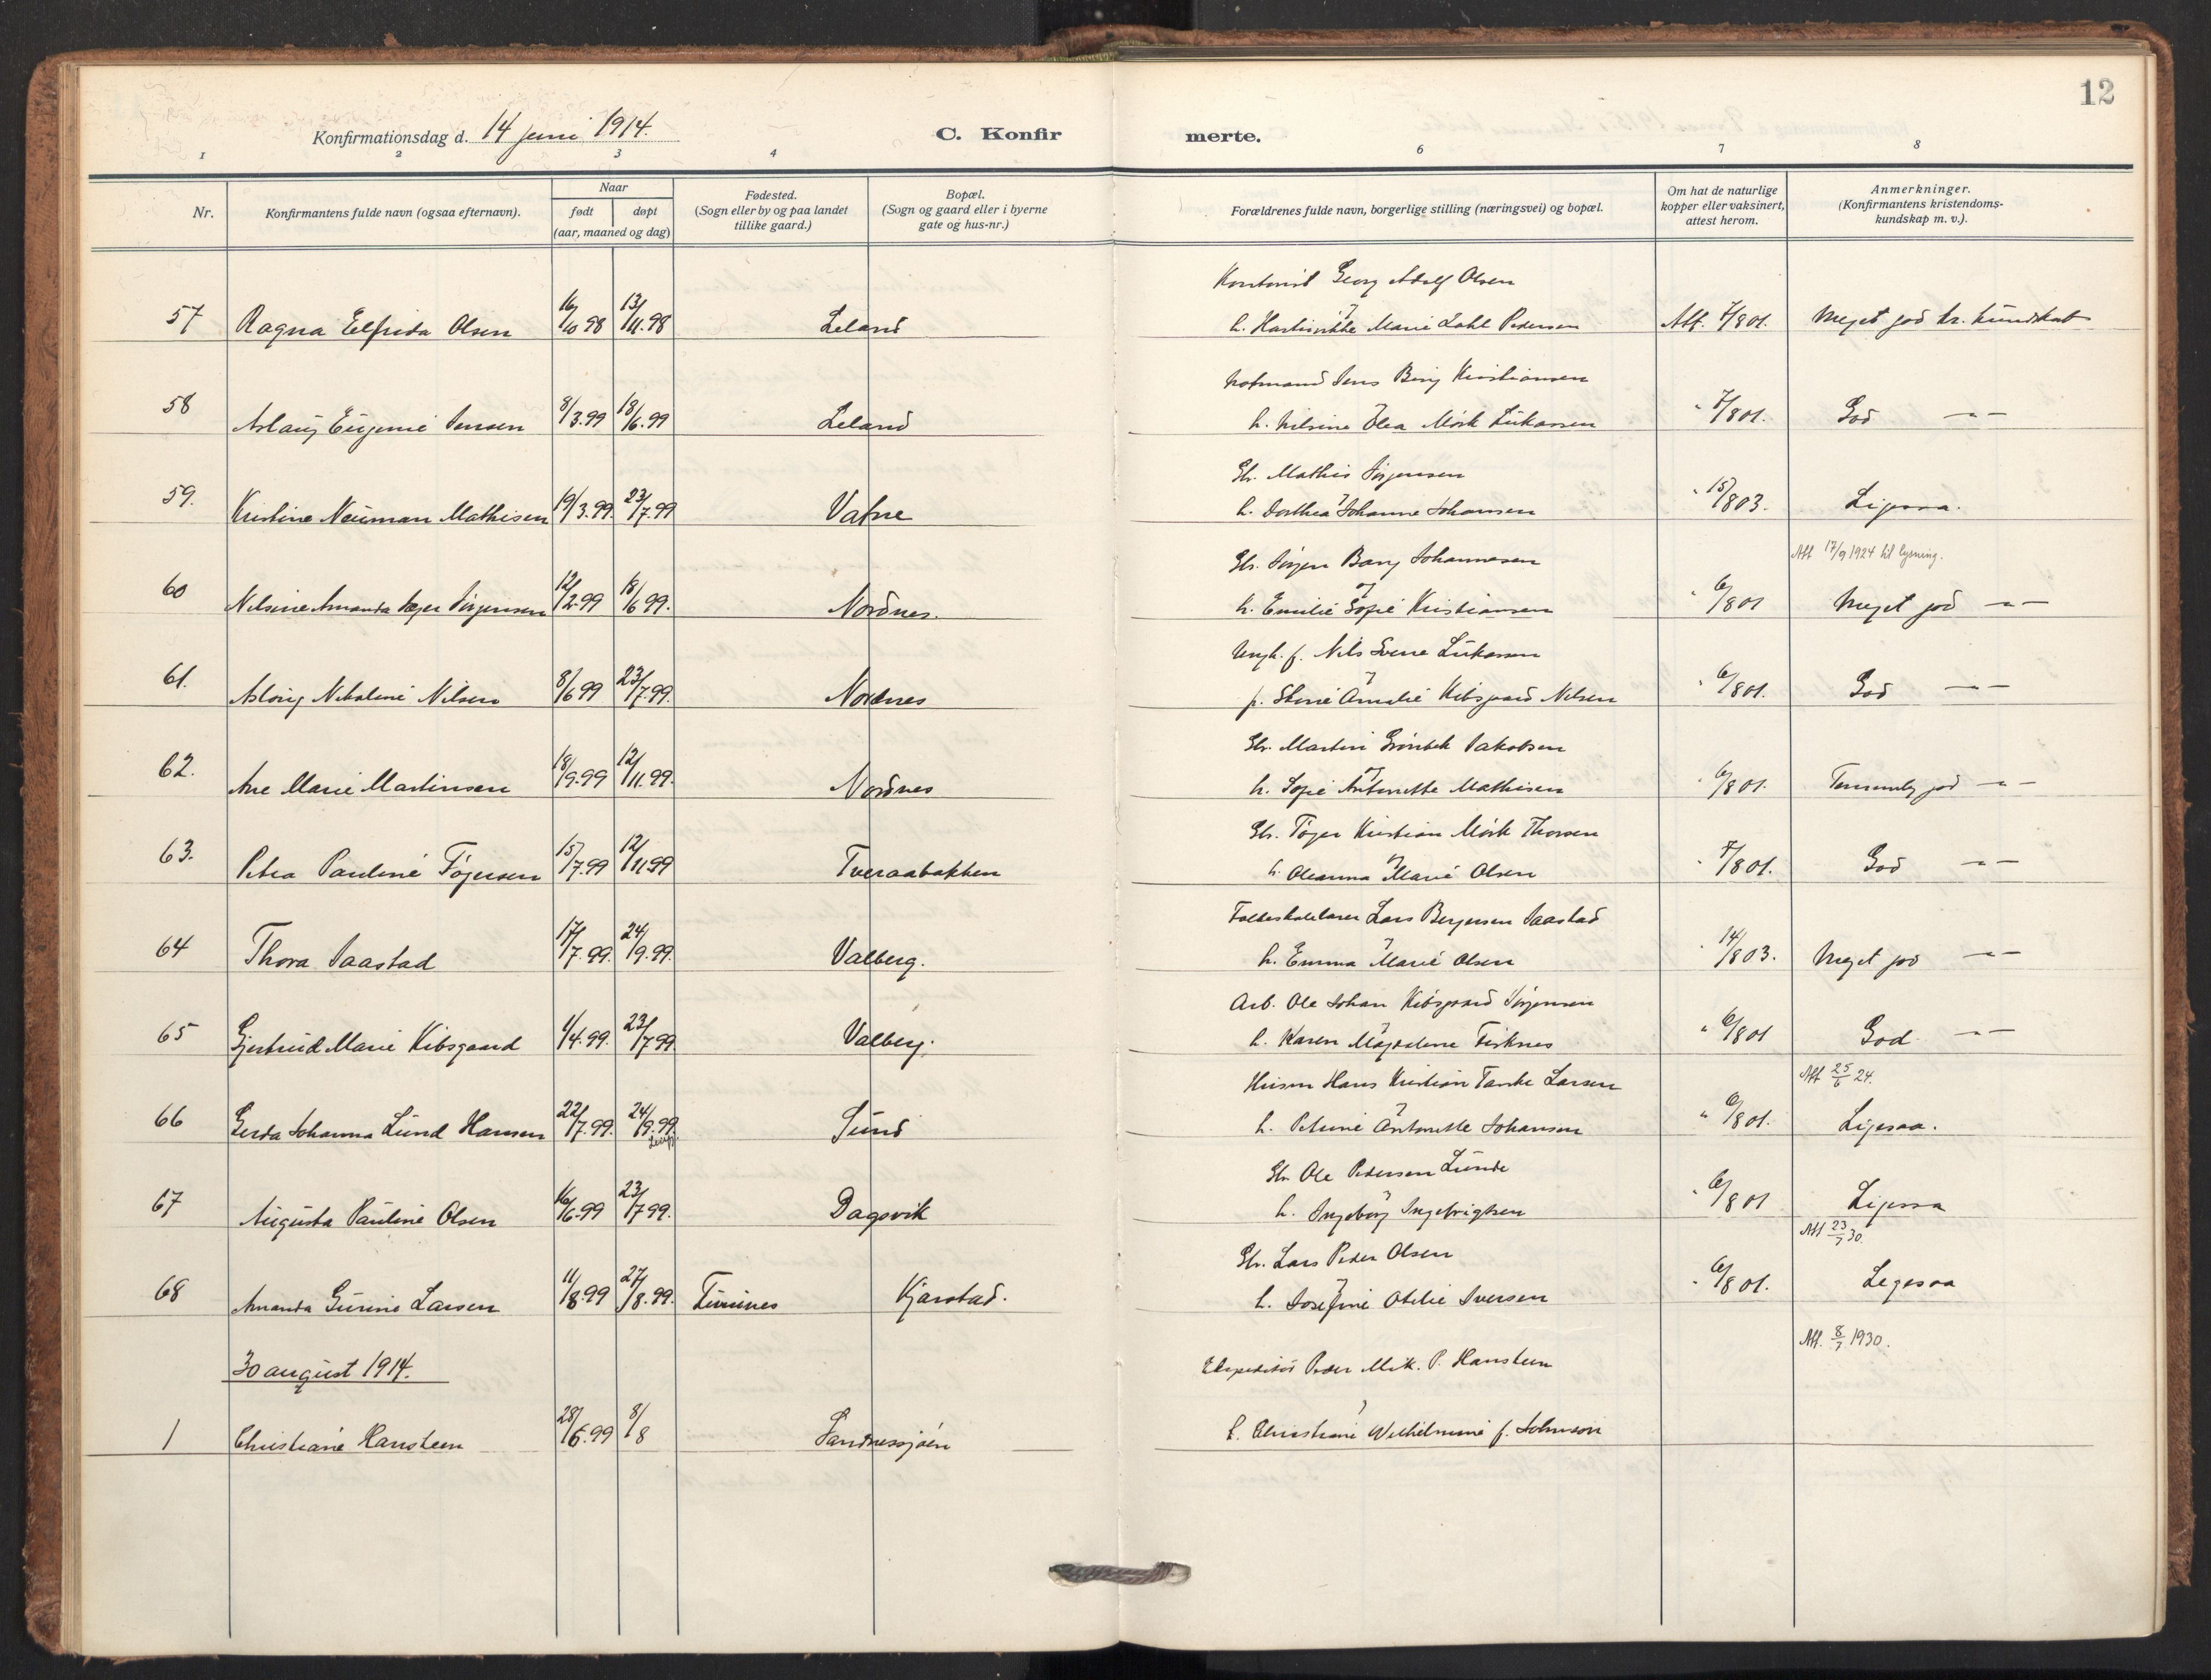 12
Konfirmationsdag d. 14 juni 1914.
C. Konfir merte.
1 2 3 4 6 7 8
Nr.
Konfirmantens fulde navn (ogsaa efternavn).
Naar
født døpt
(aar, maaned og dag)
Fødested.
(Sogn eller by og paa landet
tillike gaard.)
Bopæl.
(Sogn og gaard eller i byerne
gate og hus-nr.)
Forældrenes fulde navn, borgerlige stilling (næringsvei) og bopæl.
Om hat de naturlige
kopper eller vaksinert,
attest herom.
Anmerkninger.
(Konfirmantens kristendoms-
kundskap m. v.).
Kontorist Georg Adolf Olsen
57 Ragna Elfrida Olsen 16/10 98 13/11.98 Leland h. Marie Dahl Pedersen Att. 7/8 01. Meget god kr. kundskab
Jens Berg Kristiansen
58 Aslaug Eugenie Jensen 8/3.99 18/6.99 Leland h. Nilsine Olea Mørk Lukassen " 7/8 01. God —"—
Gbr. Mathis Jørgensen
59. Kristine Neuman Mathisen 19/3.99. 23/7.99 Vatne h. Dorthea Johanne Johansen " 15/8 03. Ligesaa.
Att 17/9 1924 til lysning.
Gbr. Jørgen Bang Johannesen
60 Nilsine Amanda Jørgensen 12/2-99 18/6 99. Nordnes. og h. Emilie Sofie Kristiansen " 6/8 01 Meget god —"—
Ungk. f. Nils Lukassen
61. Aslaug Nikoline Nilsen 8/6 99 23/7.99. Nordnes p. Amalie Kibsgaard Nilsen " 6/8 01. God —"—
Gbr. Martin Grønbek Jakobsen
62. Ane Marie Martinsen 18/9-99 12/11.99. Nordnes og h. Sofie Antonette Mathisen " 6/8 01. Temmelig god —"—
Gbr. Tøger Kristian Mørk Thorsen
63. Petra Pauline Tøgersen 15/7.99 12/11.99 Tveraabakken h. Oleanna Marie Olsen " 7/8 01. God —"—
Folkeskolelærer Lars Bergersen Saastad
64 Thora Saastad 17/7.99. 24/9.99. Valberg. h. Emma Marie Olsen " 14/8 03. Meget god —"—
Arb. Ole Johan Kibsgaard Jørgensen
65 Gjertrud Marie Kibsgaard 1/4.99. 23/7.99 Valberg. h. Karen Magdalena Fisknes " 6/8 01 God —"—
Att 25/6 24.
Husm Hans Kristian Tanke Larsen
66 Gerda Johanna Lund Hansen 22/7.99. 24/9.99. Sund h. Petrine Antonette Johansen " 6/8 01. Ligesaa.
Gbr. Ole Pedersen Lunde
67 Augusta Pauline Olsen 16/6-99 23/7 99. Dagsvik h. Ingeborg Ingebrigtsen " 6/8 01 Ligesaa
Att 23/7 30.
Gbr. Lars Peder Olsen
68 Amanda Gurine Larsen 11/8.99 27/8.99. Kjærstad. h. Josefine Otilie Iversen " 6/8 01. Ligesaa
Att. 8/7 1930.
30 august 1914.
Ekspeditør Peder Mik. P. Hansteen
1 Christiane Hansteen 28/6.99 8/8 Sandnessjøen h. Christiane Wilhelmine f. Johnson